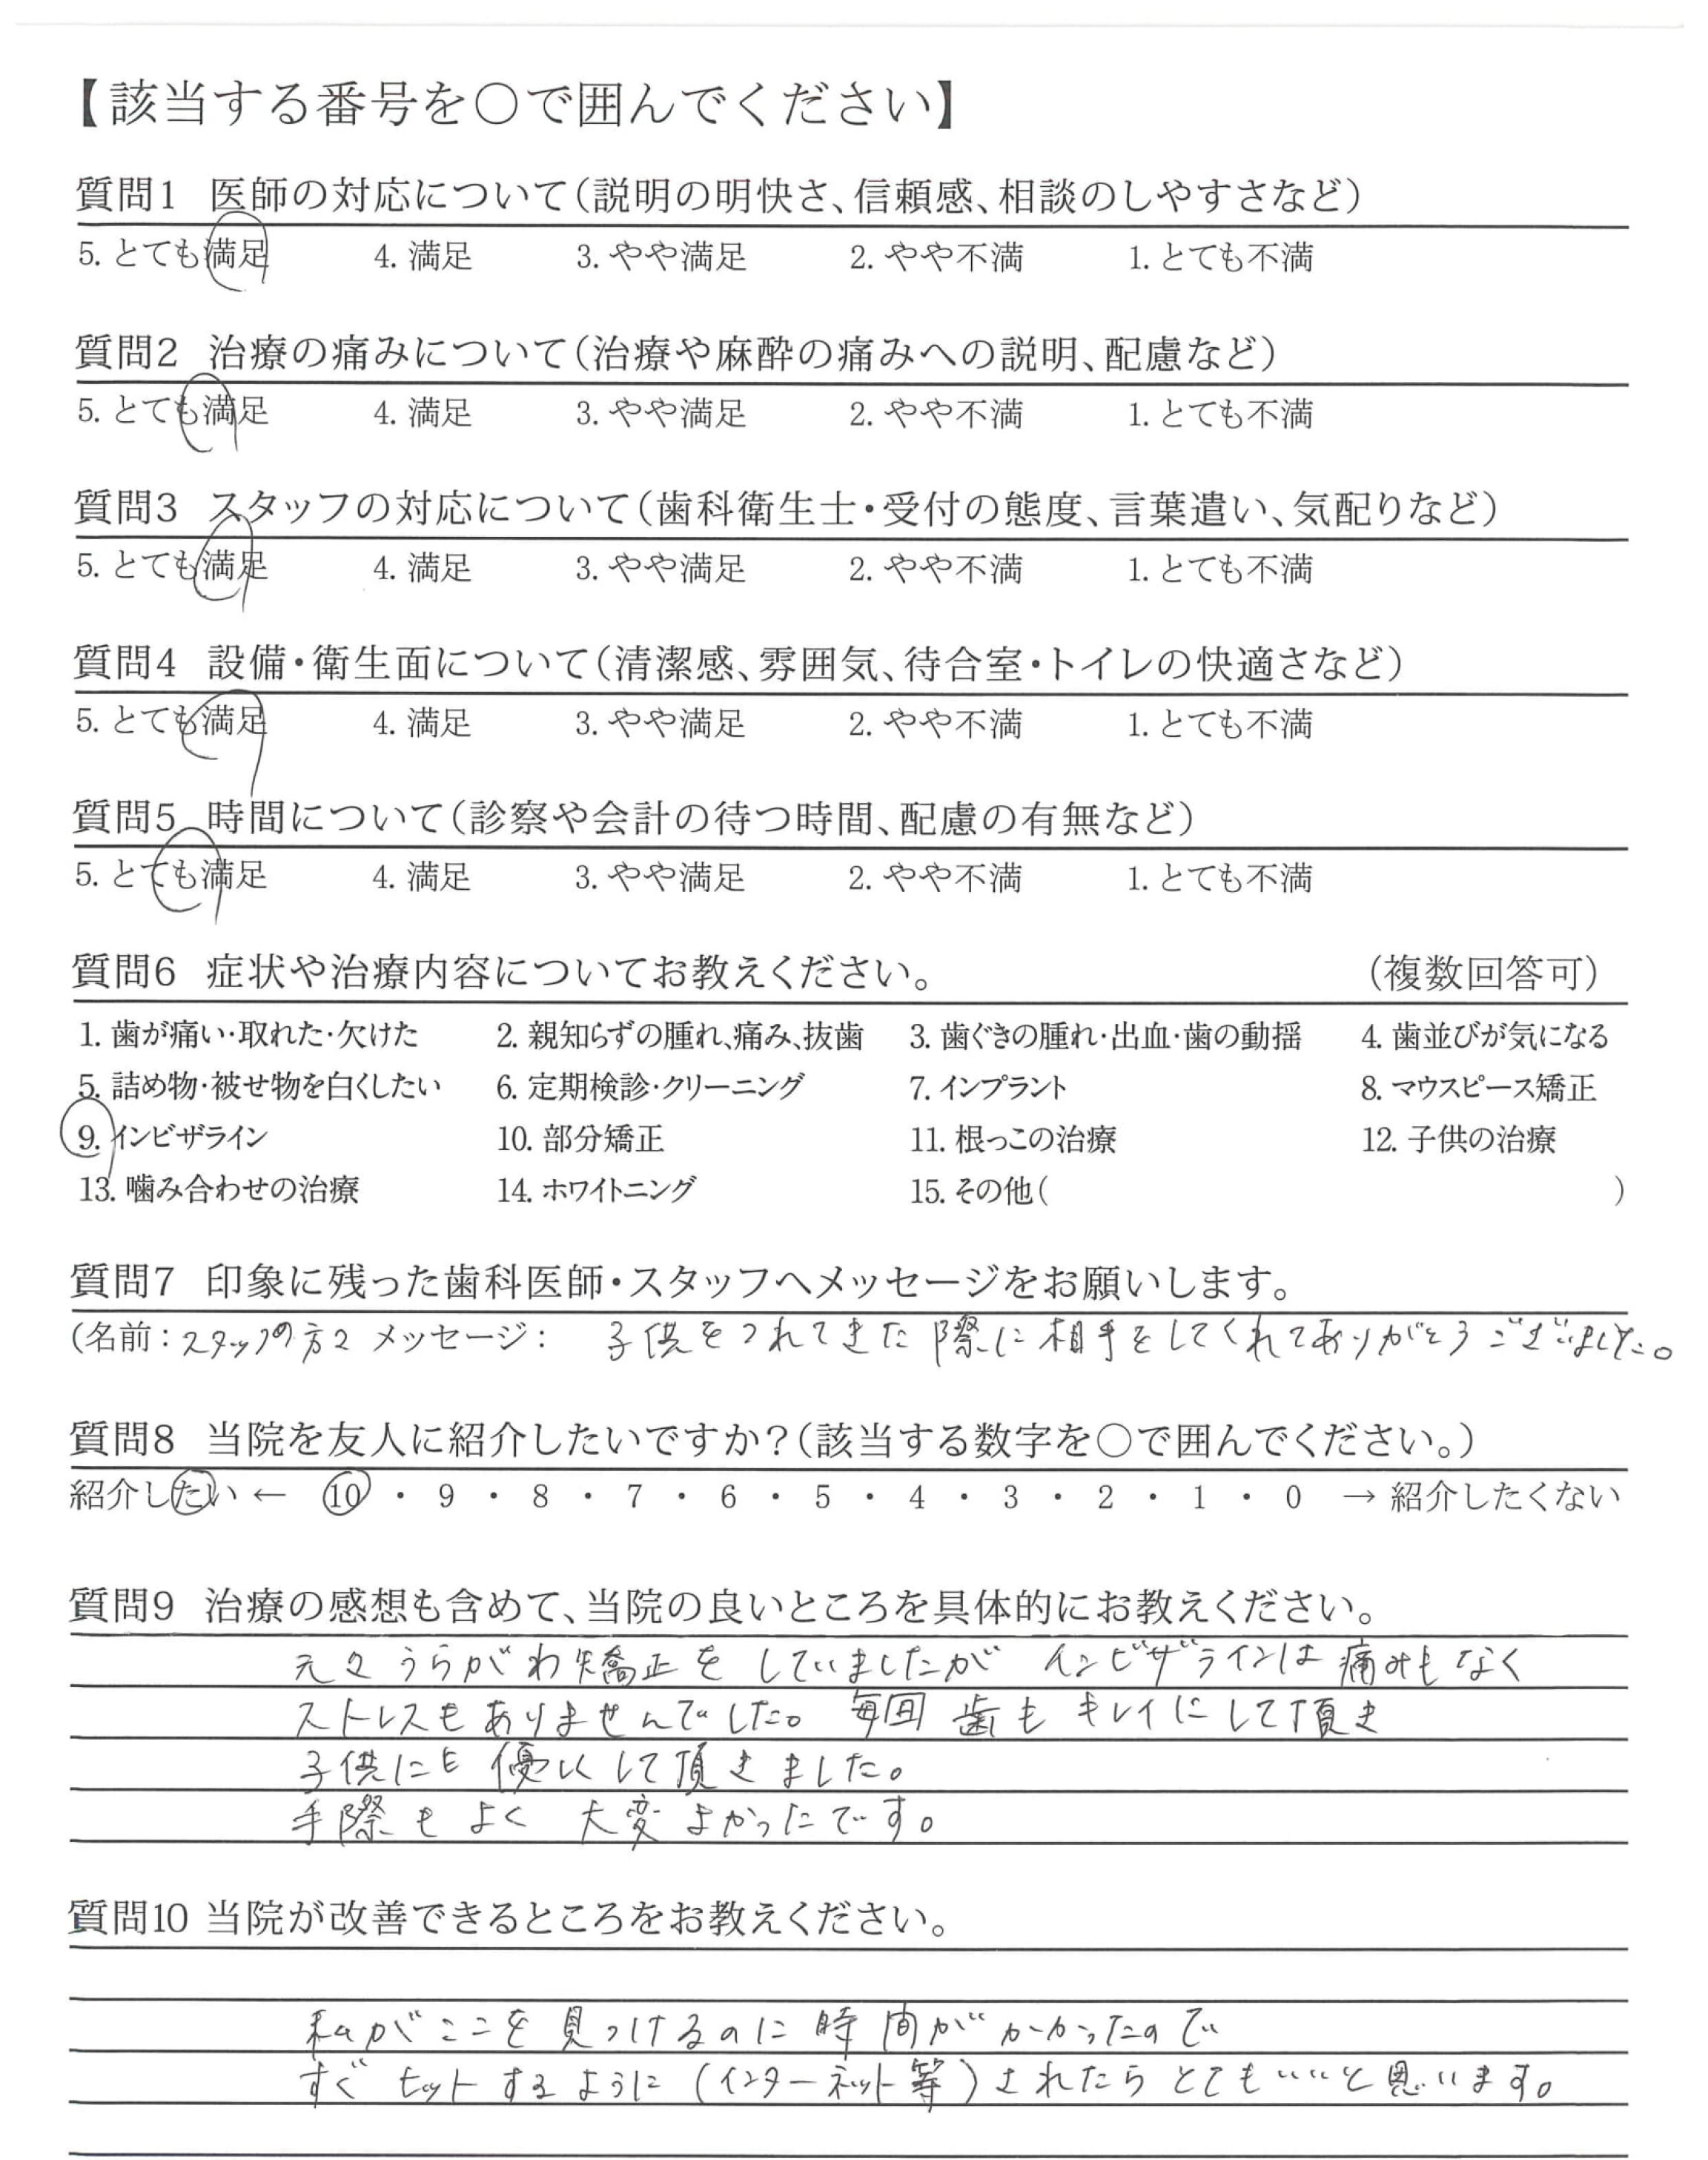 【該当する番号を○で囲んでください】
質問1 医師の対応について(説明の明快さ、信頼感、相談のしやすさなど)
5. とても満足 4. 満足 3. やや満足 2. やや不満 1. とても不満
質問2 治療の痛みについて(治療や麻酔の痛みへの説明、配慮など)
5. とても満足 4. 満足 3. やや満足 2. やや不満 1. とても不満
質問3 スタッフの対応について(歯科衛生士・受付の態度、言葉遣い、気配りなど)
5. とても満足 4. 満足 3. やや満足 2. やや不満 1. とても不満
質問4 設備・衛生面について(清潔感、雰囲気、待合室・トイレの快適さなど)
5. とても満足 4. 満足 3. やや満足 2. やや不満 1. とても不満
質問5 時間について(診察や会計の待つ時間、配慮の有無など)
5. とても満足 4. 満足 3. やや満足 2. やや不満 1. とても不満
質問6 症状や治療内容についてお教えください。 (複数回答可)
1. 歯が痛い・取れた・欠けた 2. 親知らずの腫れ、痛み、抜歯 3. 歯ぐきの腫れ・出血・歯の動揺 4. 歯並びが気になる
5. 詰め物・被せ物を白くしたい 6. 定期検診・クリーニング 7. インプラント 8. マウスピース矯正
9. インビザライン 10. 部分矯正 11. 根っこの治療 12. 子供の治療
13. 噛み合わせの治療 14. ホワイトニング 15. その他( )
質問7 印象に残った歯科医師・スタッフへメッセージをお願いします。
(名前：スタッフの方々 メッセージ： 子供をつれてきた際に相手をしてくれてありがとうございました。
質問8 当院を友人に紹介したいですか?(該当する数字を○で囲んでください。)
紹介したい ← 10 ・ 9 ・ 8 ・ 7 ・ 6 ・ 5 ・ 4 ・ 3 ・ 2 ・ 1 ・ 0 → 紹介したくない
質問9 治療の感想も含めて、当院の良いところを具体的にお教えください。
元々うらがわ矯正をしていましたが インビザラインは痛みもなく
ストレスもありませんでした。毎回 歯もキレイにして頂き
子供にも優しくして頂きました。
手際もよく 大変よかったです。
質問10 当院が改善できるところをお教えください。
私がここを見つけるのに時間がかかったので
すぐヒットするように(インターネット等)されたらとてもいいと思います。